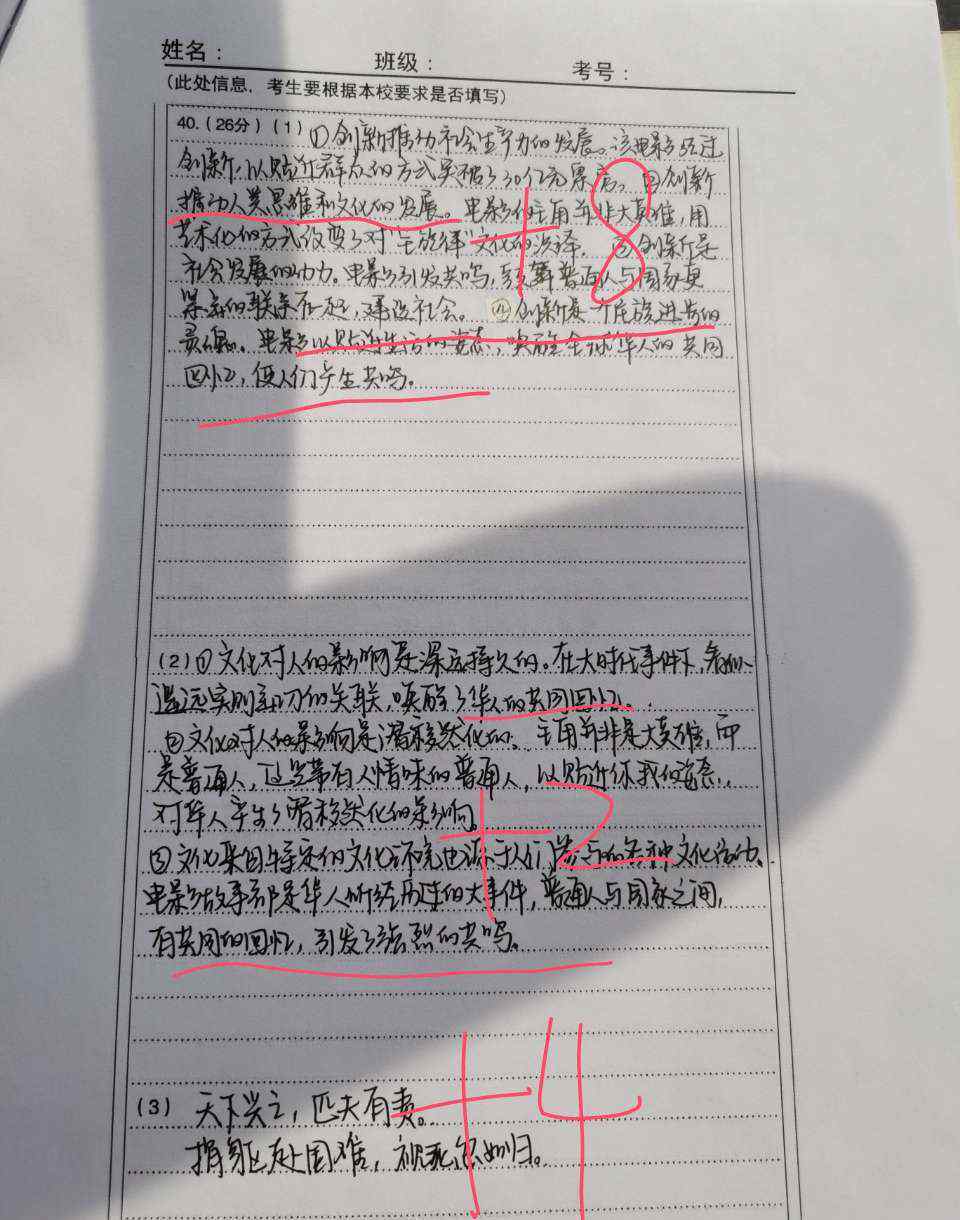 姓名：
班级：
考号：
(此处信息，考生要根据本校要求是否填写)
40.(26分)(1)①创新推动社会生产力的发展。该电影经过
创新，以贴近群众的方式获得了30亿元票房。②创新
推动人类思维和文化的发展。电影的主角并非大英雄，用
艺术化的方式改变了对"主旋律"文化的演绎。③创新是
社会发展的动力。电影引发共鸣，鼓舞普通人与国家更
紧密的联系在一起，建设社会。④创新是一个民族进步的
灵魂。电影以贴近生活的姿态，唤醒全球华人的共同
回忆，使人们产生共鸣。
+8
(2)①文化对人的影响是深远持久的。在大时代事件下，看似
遥远实则亲切的关联，唤醒了华人的共同回忆。
②文化对人的影响是潜移默化的。主角并非是大英雄，而
是普通人，这些带有人情味的普通人，以贴近你我的姿态，
对华人产生了潜移默化的影响。
+2
③文化来自特定的文化环境也源于人们参与的各种文化活动。
电影故事都是华人所经历过的大事件，普通人与国家之间，
有共同的回忆，引发了强烈的共鸣。
(3)天下兴亡，匹夫有责。
捐躯赴国难，视死忽如归。
+4